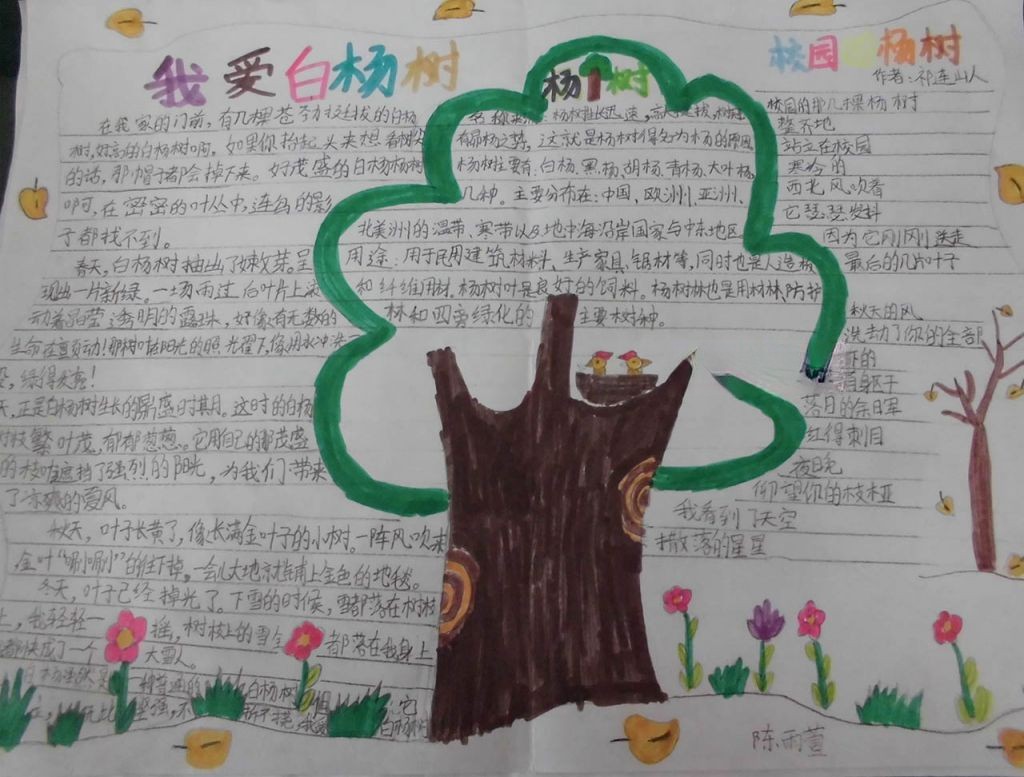 我爱白杨树
在我家的门前,有几棵苍劲挺拔的白杨
树,好高的白杨树啊,如果你抬起头来想看树头
的话,那帽子都会掉下来。好茂盛的白杨杨树
啊,在密密的叶丛中,连鸟的影
子都找不到。
春天,白杨树抽出了嫩嫩芽。呈
现出一片新绿。一场雨过后叶片上滚
动着晶莹透明的露珠,好像有无数的
生命在颤动!那树叶在阳光的照耀下,像用水冲洗
,绿得发亮!
天,正是白杨树生长的鼎盛时期。这时的白杨
树枝繁叶茂,郁郁葱葱。它用自己的那茂盛
的枝叶遮挡了强烈的阳光,为我们带来
了凉爽的夏风。
秋天,叶子长黄了,像长满金叶子的小树。一阵风吹来
金叶“唰唰”的往下掉。一会儿大地就铺上金色的地毯。
冬天,叶子已经掉光了。下雪的时候,雪都落在树枝
上,我轻轻一摇,树枝上的雪全都落在我身上
都快成了一个大雪人。
普通的白杨树但它
坚强,不白杨树
杨树
杨树生长迅速,高大挺拔,树冠
有昂扬之势,这就是杨树得名为杨的原因
杨树主要有:白杨、黑杨、胡杨、青杨、大叶杨
几种。主要分布在:中国、欧洲、亚洲、
北美洲的温带、寒带以及地中海沿岸国家与中东地区
用途:用于民用建筑材料、生产家具、锯材等,同时也是人造板
和纤维用材,杨树叶是良好的饲料。杨树林也是用材林、防护
林和四旁绿化的主要树种。
校园的杨树
作者:祁连山人
校园的那几棵杨树
整齐地
站立在校园
寒冷的
西北风吹着
它瑟瑟发抖
因为它刚刚送走
最后的几片叶子
秋天的风
洗去了你的全部
下的
身躯于
落日的余晖
红得刺目
夜晚
仰望你的枝桠
我看到了天空
撒落的星星
陈雨萱